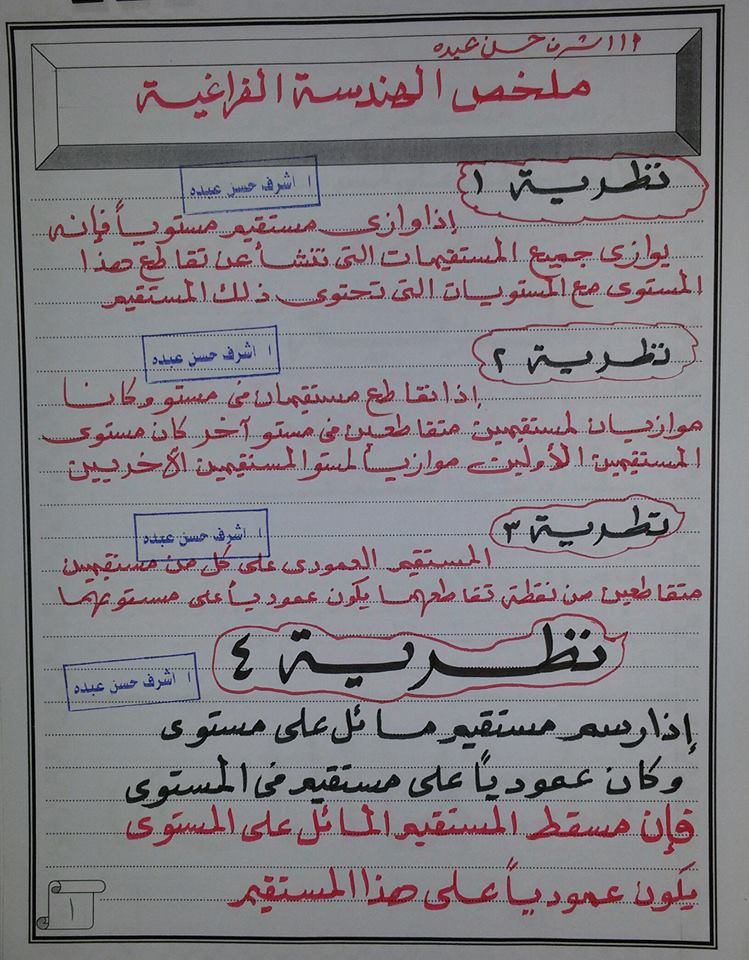 ١١١ اشرف حسن عبده
ملخص الهندسة الفراغية
نظرية ١
ا اشرف حسن عبده
إذا وازى مستقيم مستوياً فإنه
يوازى جميع المستقيمات التى تنشأ عن تقاطع هذا
المستوى مع المستويات التى تحتوى ذلك المستقيم
نظرية ٢
ا اشرف حسن عبده
إذا تقاطع مستقيمان فى مستو وكانا
موازيان لمستقيمين متقاطعين فى مستو آخر كان مستوى
المستقيمين الأولين موازياً لمستو المستقيمين الآخريين
نظرية ٣
ا اشرف حسن عبده
المستقيم العمودى على كل من مستقيمين
متقاطعين من نقطة تقاطعهما يكون عمودياً على مستويهما
نظرية ٤
ا اشرف حسن عبده
إذا رسم مستقيم مائل على مستوى
وكان عمودياً على مستقيم فى المستوى
فإن مسقط المستقيم المائل على المستوى
يكون عمودياً على هذا المستقيم
١